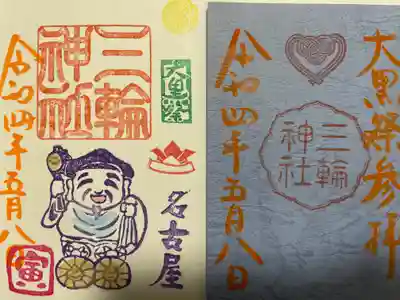 大黒祭
名古屋
三輪
神社
令和四年五月八日
寅
大黒祭参拝
三輪
神社
令和四年五月八日